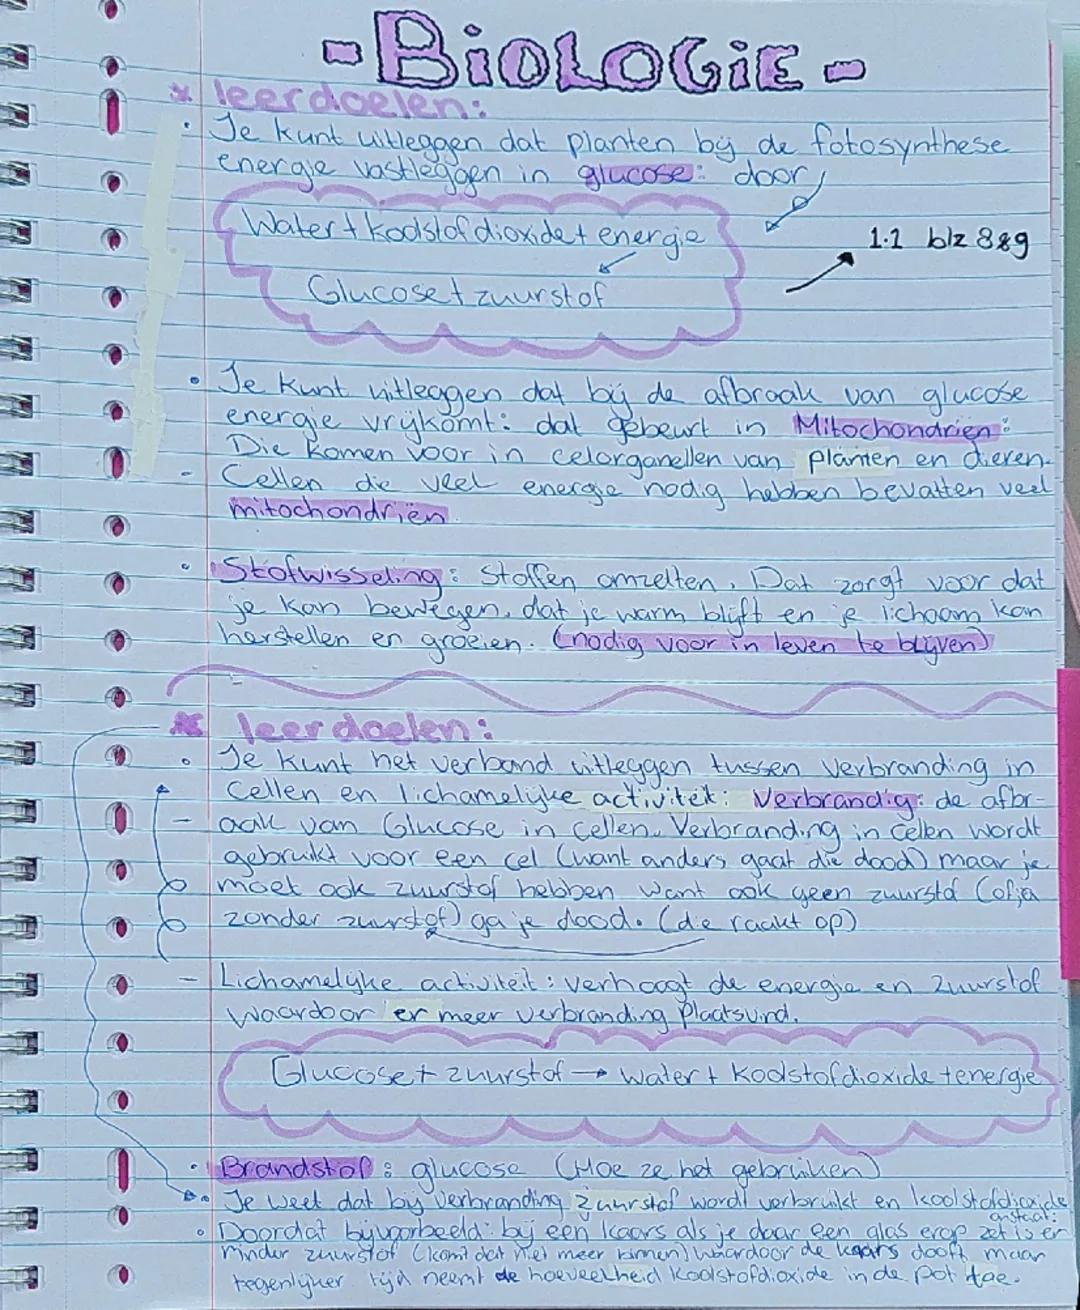 -BiOLOGiE-
* leerdoelen:
• Je kunt uitleggen dat planten bij de fotosynthese
energie vastleggen in glucose: door
Water + koolstofdioxide + energie
1.1 blz 8&9
Glucose + zuurstof
• Je kunt uitleggen dat bij de afbraak van glucose
energie vrijkomt: dat gebeurt in Mitochondriën:
Die komen voor in celorganellen van planten en dieren.
- Cellen die veel energie nodig hebben bevatten veel
mitochondriën
• Stofwisseling: Stoffen omzetten. Dat zorgt voor dat
je kan bewegen, dat je warm blijft en je lichaam kan
herstellen en groeien. (nodig voor in leven te blijven)
* leerdoelen:
• Je kunt het verband uitleggen tussen verbranding in
Cellen en lichamelijke activiteit: Verbrandig: de afbr-
- aak van Glucose in cellen. Verbranding in cellen wordt
gebruikt voor een cel (want anders gaat die dood) maar je
moet ook zuurstof hebben want ook geen zuurstof
zonder zuurstof) ga je dood. (die raakt op)
- Lichamelijke activiteit: verhoogt de energie en zuurstof
waardoor er meer verbranding plaatsvind.
Glucose + zuurstof → water + koolstofdioxide + energie
• Brandstof: glucose (Hoe ze het gebruiken)
• Je weet dat bij verbranding zuurstof wordt verbruikt en koolstofdioxide
onstaat:
• Doordat bijvoorbeeld: bij een kaars als je daar een glas erop zet is er
minder zuurstof (komt dat niet meer binnen) waardoor de kaars dooft, maar
tegenlijker tijd neemt de hoeveelheid koolstofdioxide in de pot toe.